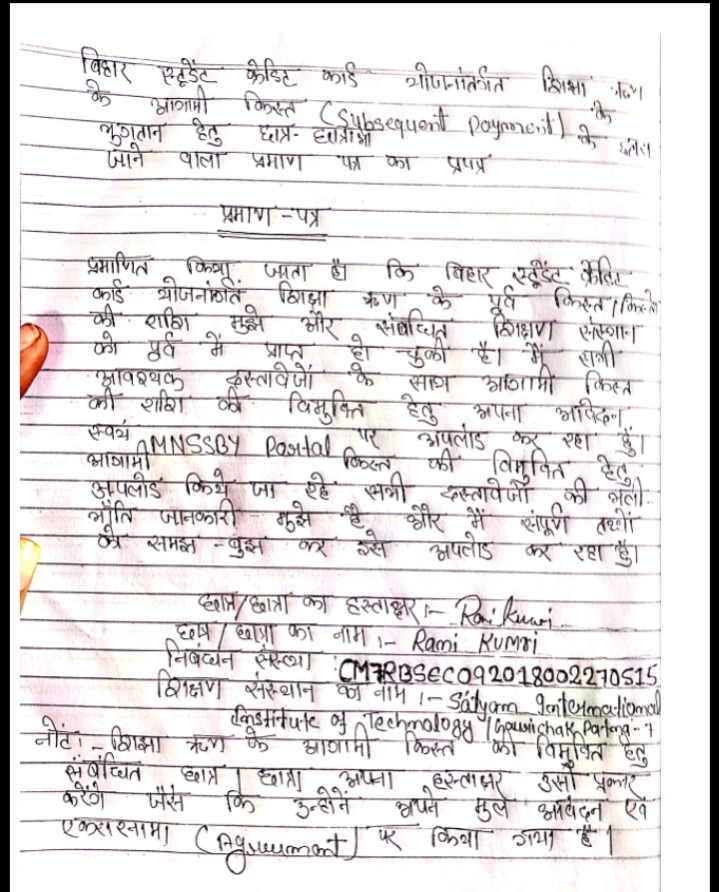 बिहार स्टूडेंट क्रेडिट कार्ड योजनांतर्गत शिक्षा ऋण
के आगामी किस्त (Subsequent Payment) के
भुगतान हेतु छात्र-छात्राओं के द्वारा
जाने वाला प्रमाण पत्र का प्रपत्र
प्रमाण-पत्र
प्रमाणित किया जाता है। कि बिहार स्टूडेंट क्रेडिट
कार्ड योजनांर्गत शिक्षा ऋण के पूर्व किस्त/किस्तो
की राशि मुझे और संबंधित शिक्षण संस्थान
को पूर्व में प्राप्त हो चुकी है। मैं सभी
आवश्यक दस्तावेजों के साथ आगामी किस्त
की राशि की विमुक्ति हेतु अपना आवेदन
स्वयं MNSSBY Portal पर अपलोड कर रहा हूँ।
आगामी किस्त की विमुक्ति हेतु
अपलोड किये जा रहे सभी दस्तावेजों की भली
भाँति जानकारी मुझे है और मैं संपूर्ण तथ्यों
को समझ-बुझ कर इसे अपलोड कर रहा हूँ।
छात्र/छात्रा का हस्ताक्षर :-
छात्र/छात्रा का नाम :- Rani KUMRI
निबंधन संख्या : CM7RBSEC092018002270515
शिक्षण संस्थान का नाम :- Satyam International
Institute of Technology, Gaurichak, Patna-7
नोट :- शिक्षा ऋण के आगामी किस्त की विमुक्ति हेतु
संबंधित छात्र/छात्रा अपना हस्ताक्षर उसी प्रकार
करेंगे जैसे कि उन्होंने अपने मुल आवेदन एवं
एकरारनामा (Agreement) पर किया गया है।